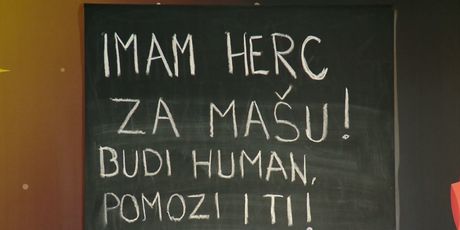 IMAM HERC
ZA MAŠU!
BUDI HUMAN,
POMOZI I TI!